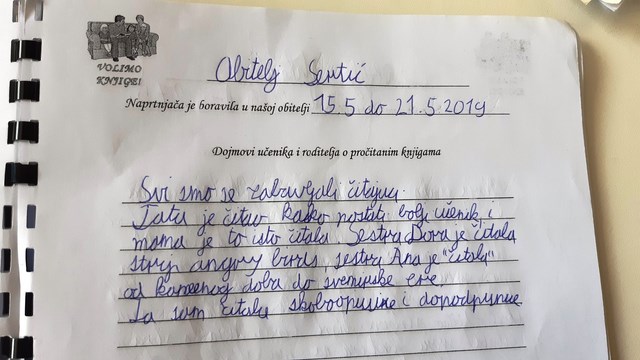 VOLIMO
KNJIGE!
Obitelj
Naprtnjača je boravila u našoj obitelji 15.5 do 21.5.2019
Dojmovi učenika i roditelja o pročitanim knjigama
Svi smo se zabavljali čitajući.
Tata je čitao kako postati bolji učenik, i
mama je to isto čitala. Sestra Dora je čitala
strip angry birds, sestra Ana je "čitala"
od kamenog doba do svemirske ere.
Ja sam čitala i